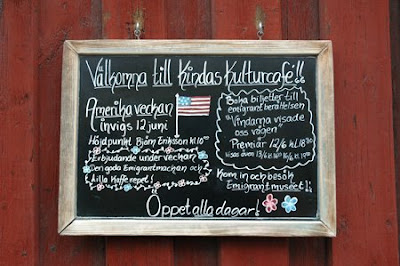 Välkomna till Kindas Kulturcafé!!
Amerikaveckan
invigs 12 juni
Höjdpunkt Björn Eriksson kl 19.00
Erbjudande under veckan
Den goda Emigrantmackan och
Lilla Kafferepet!
Boka biljetter till
emigrantberättelsen
"Vindarna visade
oss vägen"
Premiär 12/6 kl 18.00
Visas även 13/6 kl 16.00 16/6 kl 19.00
Kom in och besök
Emigrantmuseet!!
Öppet alla dagar!